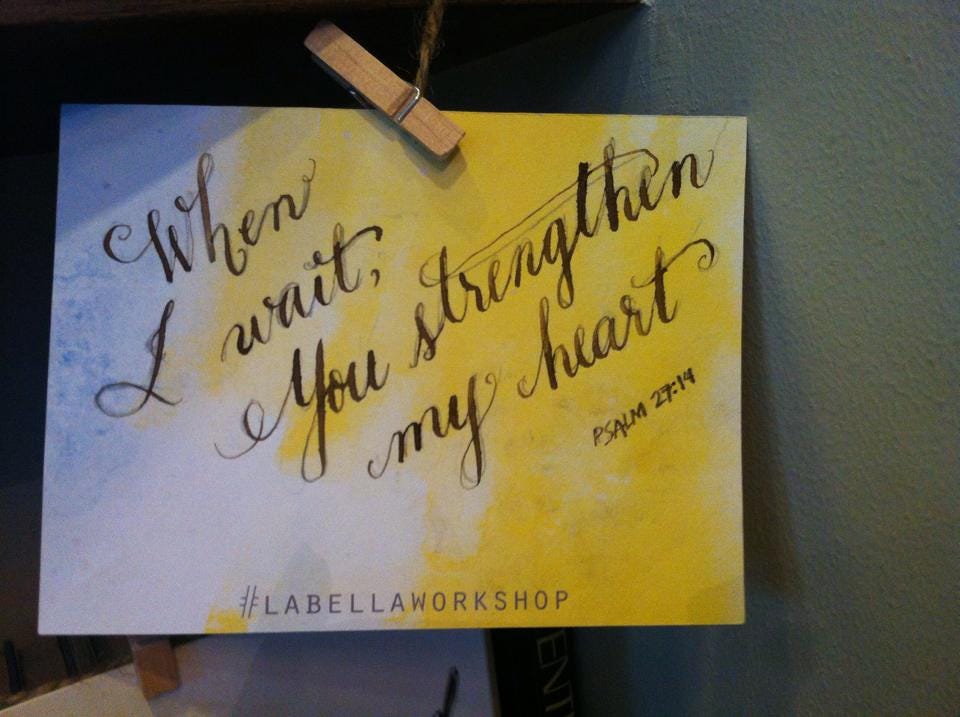 When
I wait,
You strengthen
my heart
PSALM 27:14
#LABELLAWORKSHOP
ENT